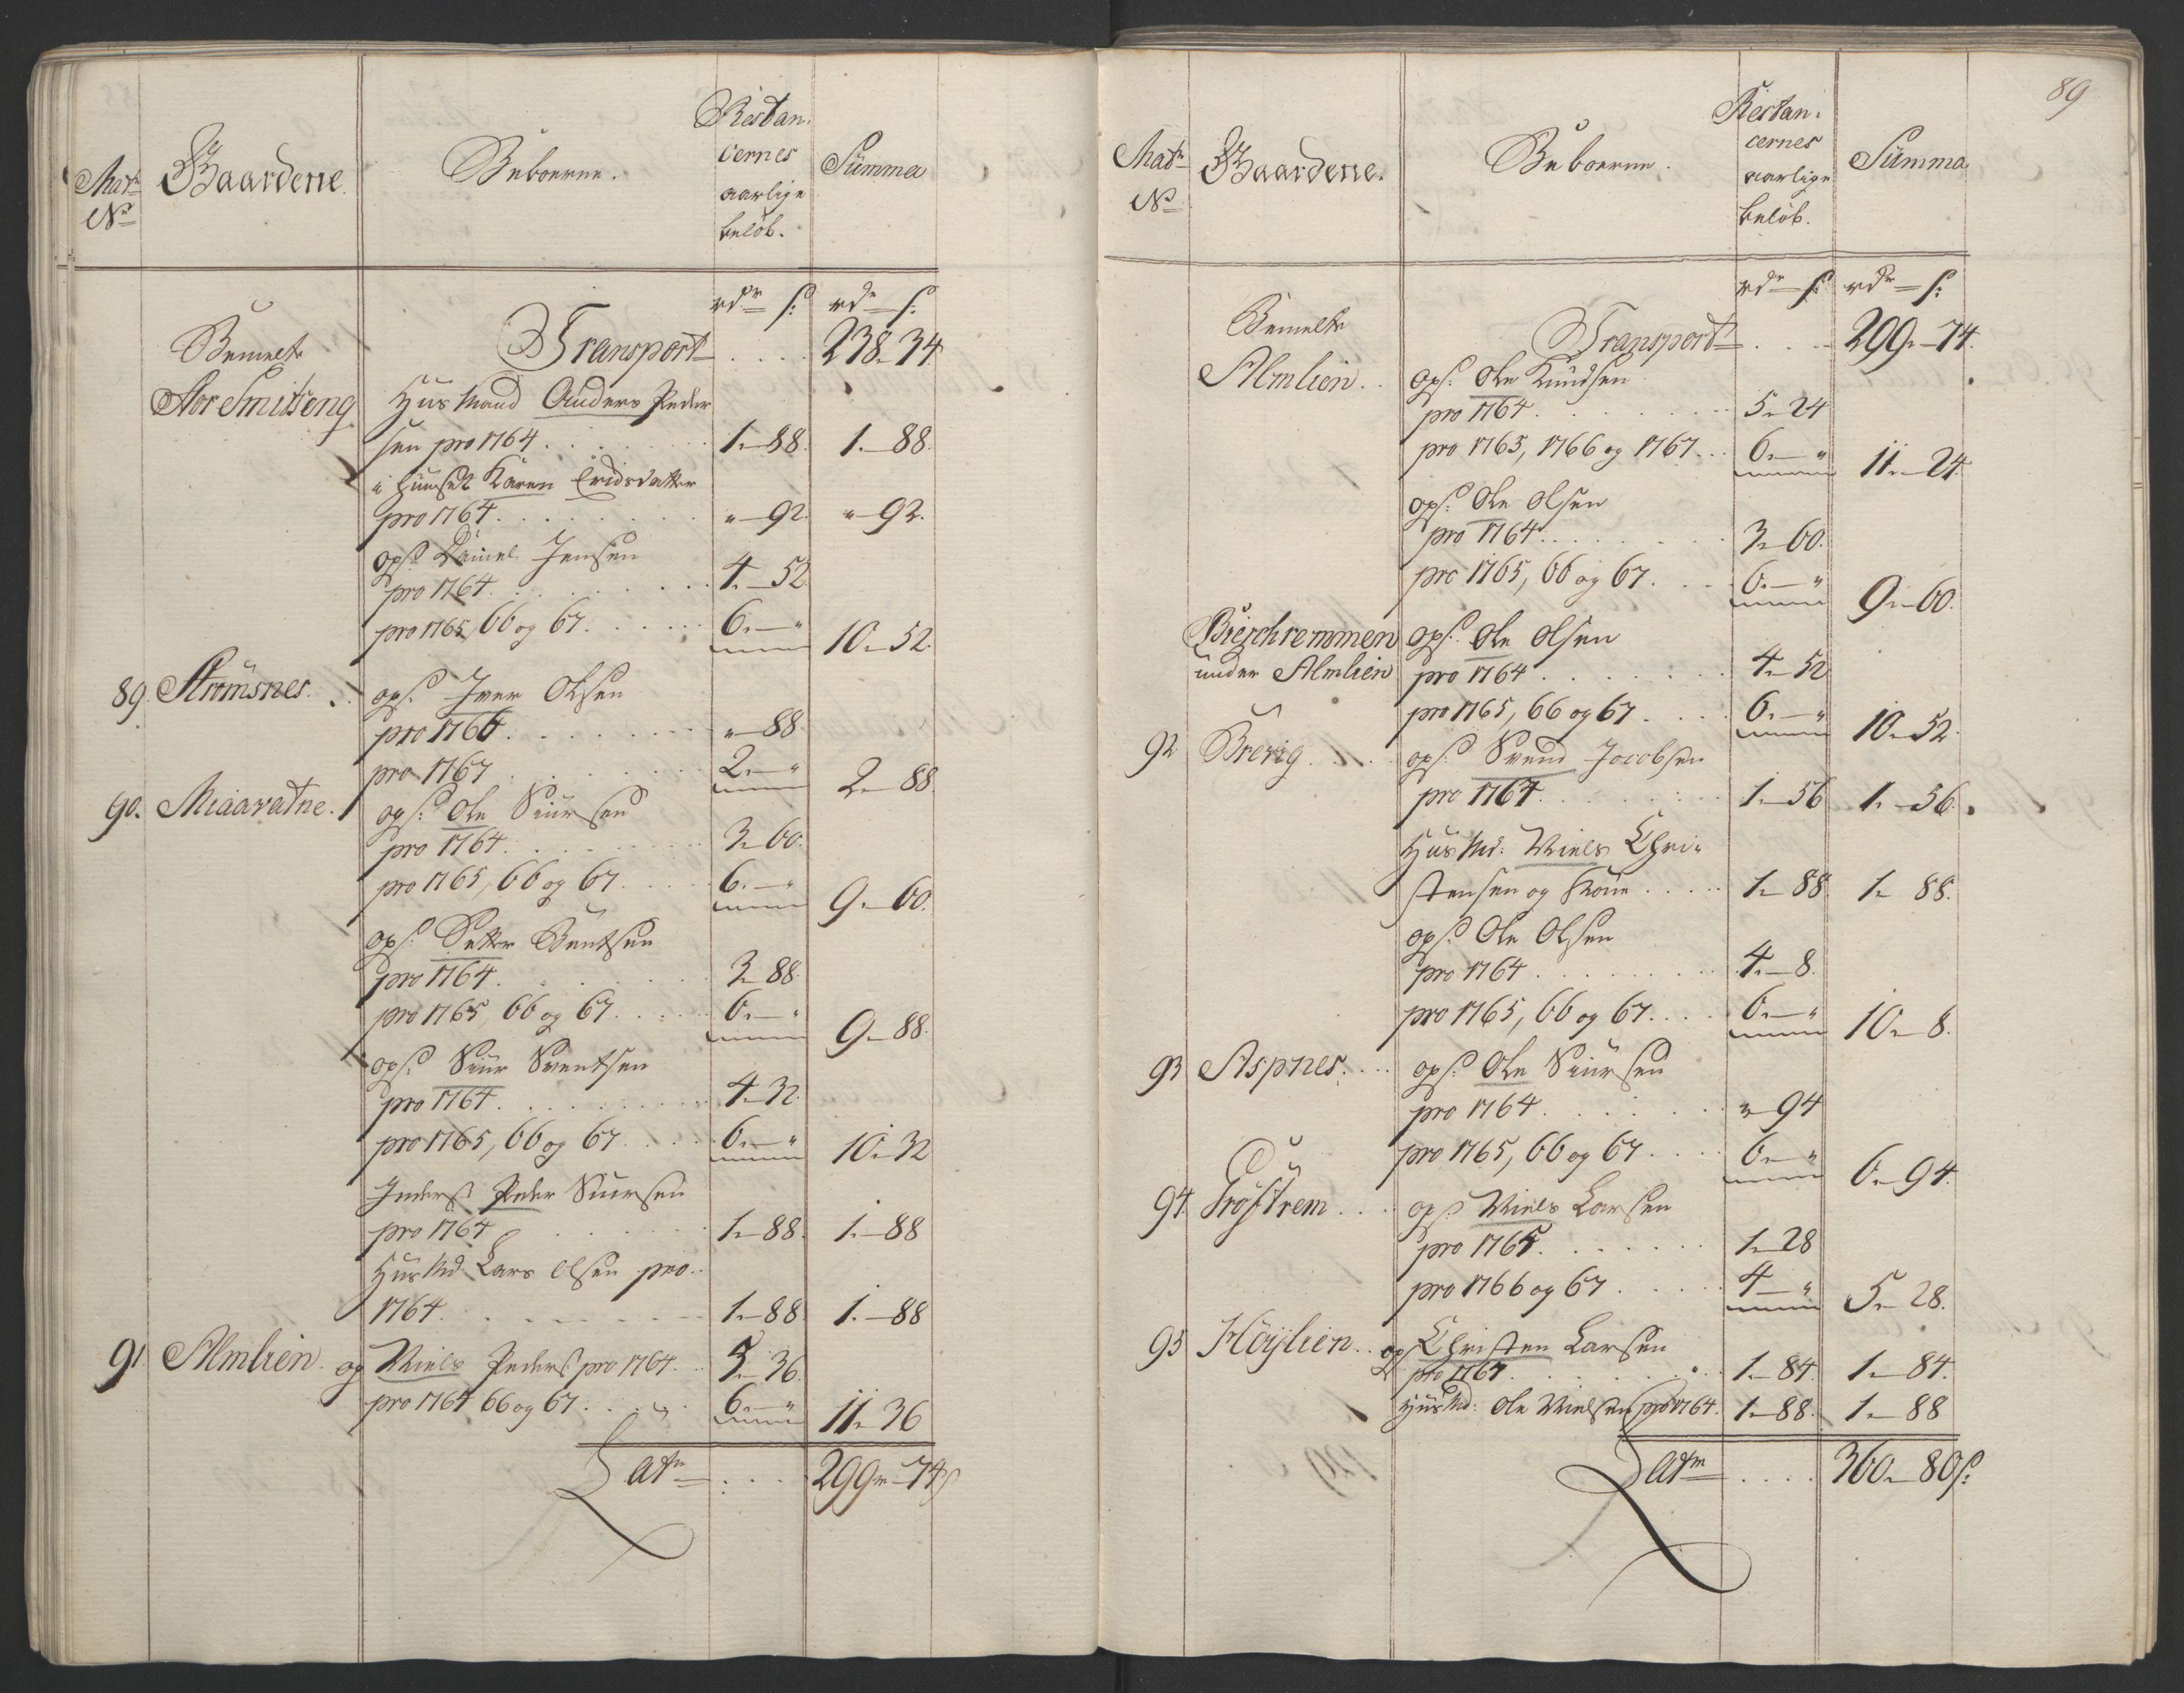 Matr: No
Gaardene.
Beboerne.
Restan:
cernes
aarlige
beløb.
Summa
rdr — s:
rdr — s:
Bemelte
Transport . . . . 238 - 34.
Stor Smitseng
Huusmand Anders Peder
sen pro 1764 . . . 1. — 88. 1. — 88.
i Huuset Karen
pro 1764 . . . " — 92. " — 92.
ops: Daniel Jensen
pro 1764 . . . 4. — 52
pro 1765, 66 og 67 . . . 6. — " 10. — 52.
89. Strømsnes. ops: Iver Olsen
pro 1766 . . . " — 88
pro 1767 . . . 2. — " 2. — 88
90. Miaavatne. ops: Ole Siursen
pro 1764 . . . 3. — 60.
pro 1765, 66 og 67 . . . 6. — " 9. — 60.
ops: Petter Bentsen
pro 1764 . . . 3. — 88
pro 1765, 66 og 67 . . . 6. — " 9. — 88.
ops: Siur Sventsen
pro 1764 . . . 4. — 32
pro 1765, 66 og 67 . . . 6. — " 10. — 32
Inders: Peder Siursen
pro 1764 . . . 1. — 88. 1. — 88
Huusmd: Lars Olsen pro
1764 . . . 1. — 88 1. — 88
91 Almlien. op Niels Peders: pro 1764 . . 5. — 36
pro 1764 66 og 67 . . . 6. — " 11. — 36
Latr . . . 299 — 74 s
89
Matr: No
Gaardene.
Beboerne.
Restan:
cernes
aarlige
beløb.
Summa
rdr — s:
rdr — s:
Bemelte
Transport . . . 299. — 74.
Almlien . . ops: Ole Knudsen
pro 1764 . . . 5. — 24
pro 1765, 1766 og 1767 . . . 6. — " 11. — 24.
ops: Ole Olsen
pro 1764 . . . 3. — 60.
pro 1765, 66 og 67 . . . 6. — " 9. — 60.
Bierchremmen ops: Ole Olsen
under Almlien pro 1764 . . . 4. — 52
pro 1765, 66 og 67 . . . 6. — " 10. — 52.
92 Brevig . . . ops: Svend Jacobsen
pro 1764 . . . 1. — 56 1. — 56.
Huusmd: Niels Chri-
stensen og Kone . . . 1. — 88 1. 88.
ops: Ole Olsen
pro 1764 . . . 4. — 8.
pro 1765, 66 og 67 . . . 6. — " 10. — 8.
93 Aspnes . . . ops: Ole Siursen
pro 1764 . . . " — 94
pro 1765, 66 og 67 . . . 6. — " 6. — 94.
94 Grøstrem . . . ops: Niels Larsen
pro 1765 . . . 1. — 28
pro 1766 og 67 . . . 4. — " 5. — 28.
95 Høylien . . ops Christen Larsen
pro 1767 . . . 1. — 84. 1. — 84.
Huusmd: Ole Nielsen pro 1764. 1. — 88. 1. — 88
Latr . . . . 360. — 80 s: